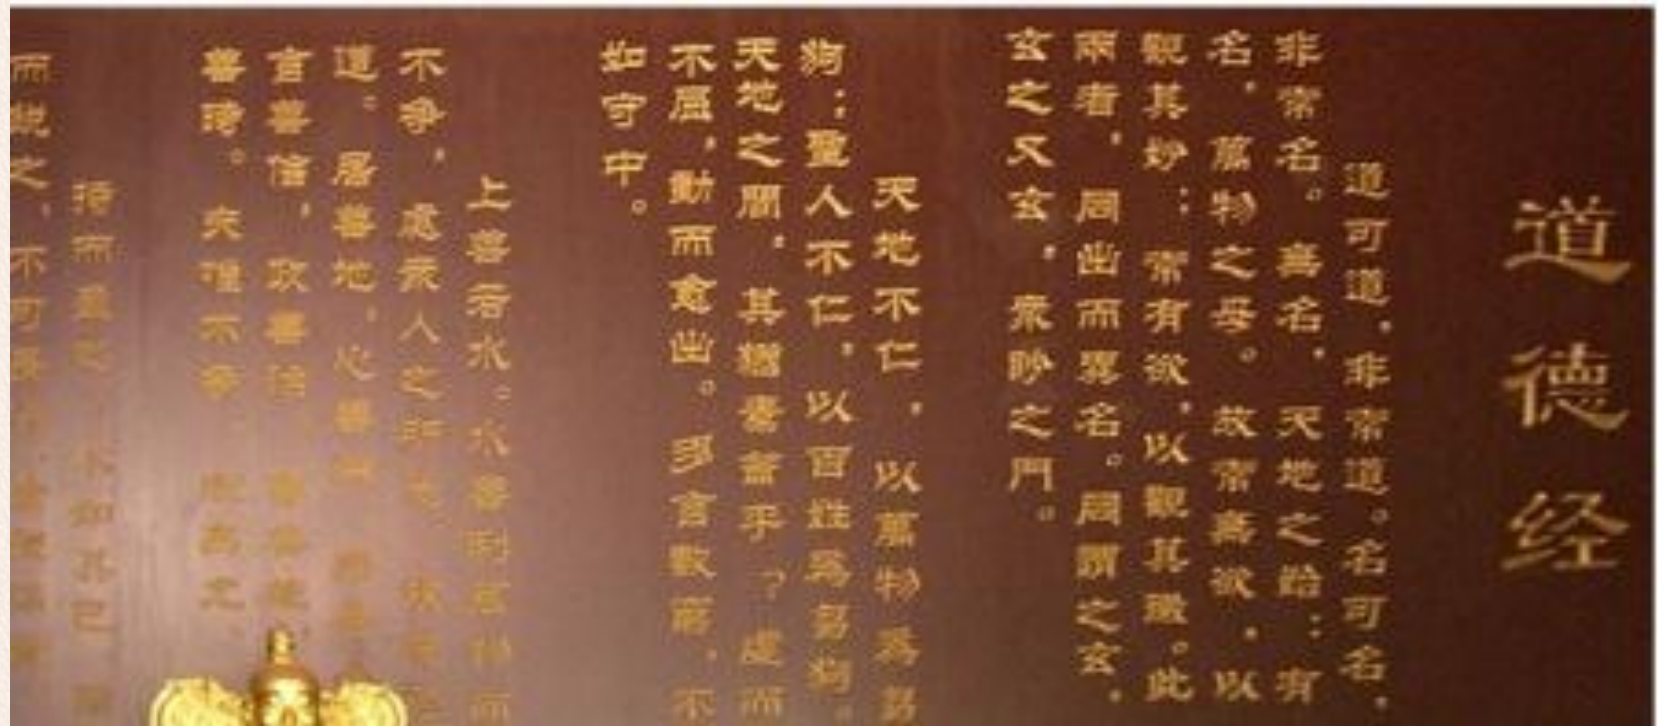 道德经
道可道，非常道。名可名，
非常名。無名，天地之始；有
名，萬物之母。故常無欲，以
觀其妙；常有欲，以觀其徼。此
兩者，同出而異名。同謂之玄，
玄之又玄，衆眇之門。
天地不仁，以萬物爲芻
狗；聖人不仁，以百姓爲芻狗。
天地之間，其猶橐龠乎？虛而
不屈，動而愈出。多言數窮，不
如守中。
上善若水。水善利萬物而
不争，處衆人之所惡，故幾
道。居善地，心善淵，與善
言善信，政善治，事善能，
善時。夫唯不争，故無尤。
持而盈之，不如其已
而銳之，不可長